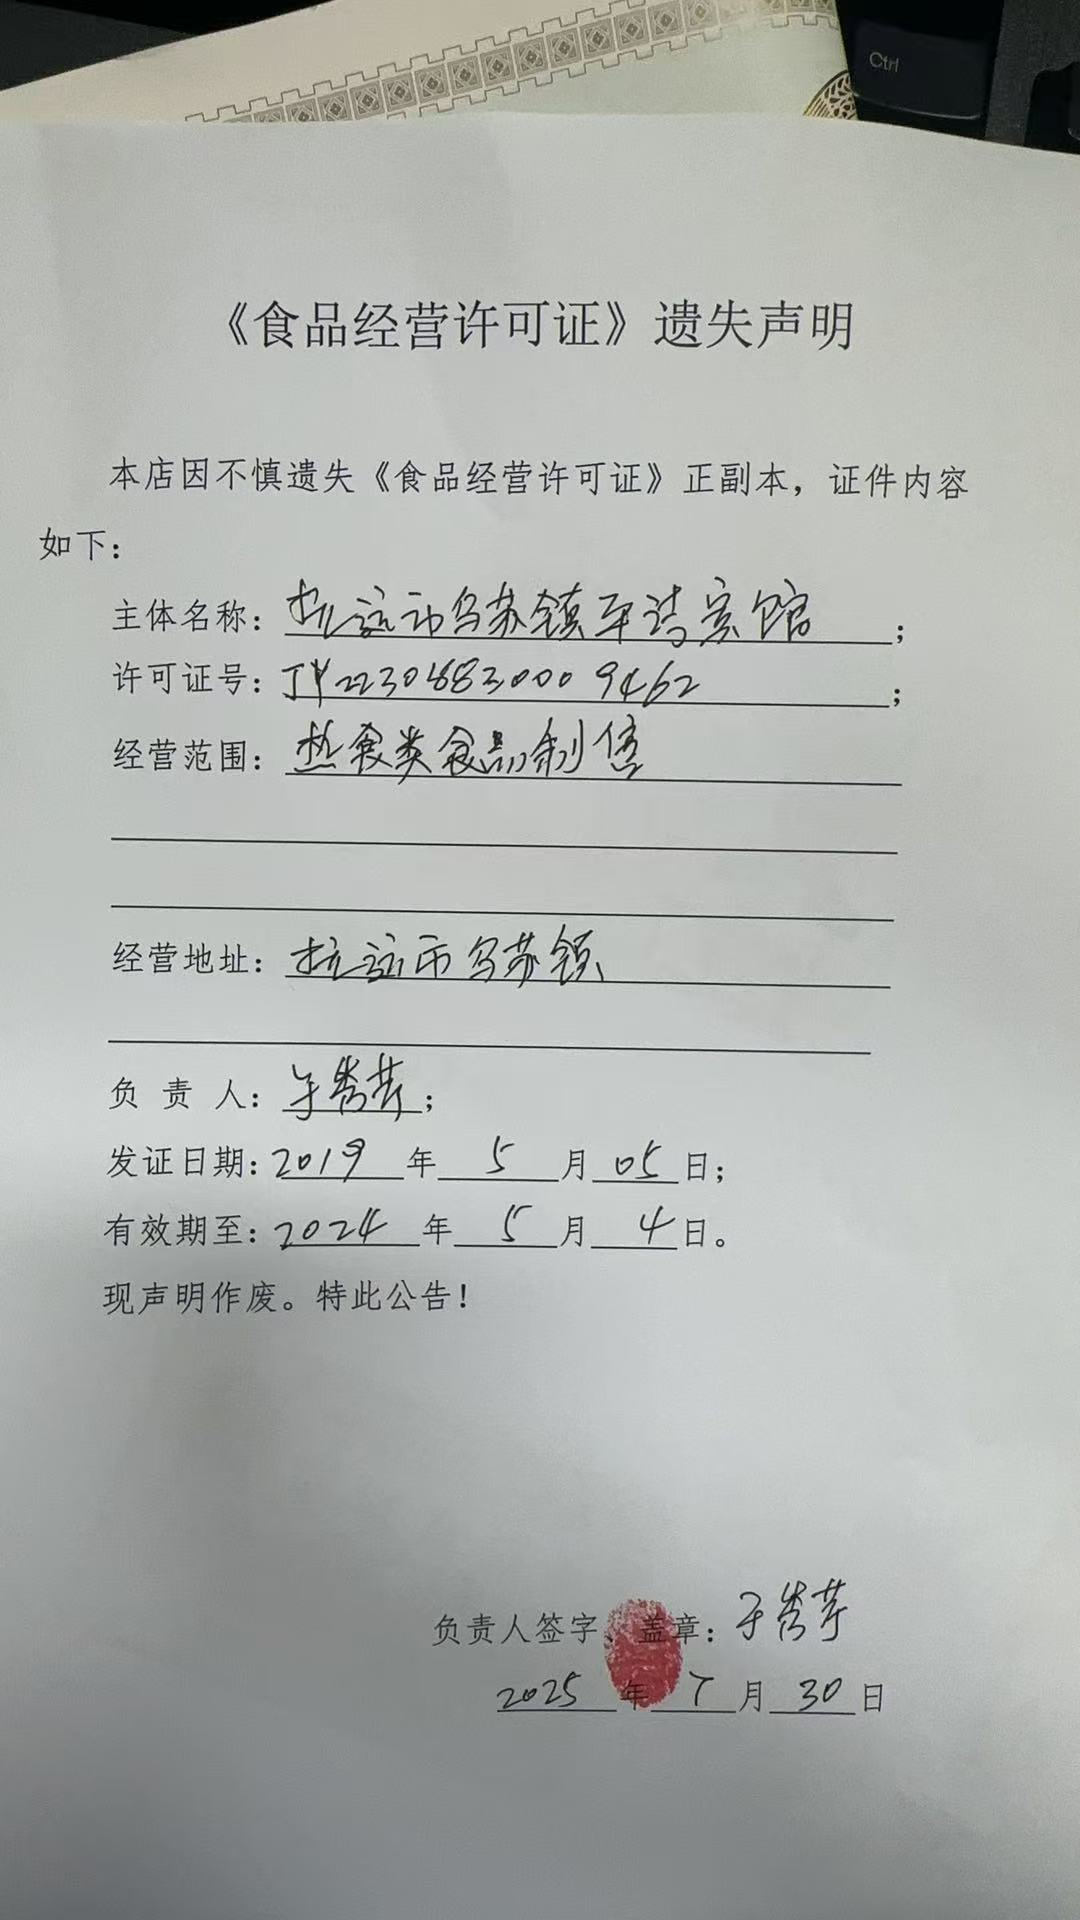 Ctrl
《食品经营许可证》遗失声明
本店因不慎遗失《食品经营许可证》正副本，证件内容
如下：
主体名称：抚远市乌苏镇军涛宾馆；
许可证号：JY22308830009462；
经营范围：热食类食品制售
经营地址：抚远市乌苏镇
负 责 人：于秀芹；
发证日期：2019年5月05日；
有效期至：2024年5月4日。
现声明作废。特此公告！
负责人签字、盖章：于秀芹
2025年7月30日